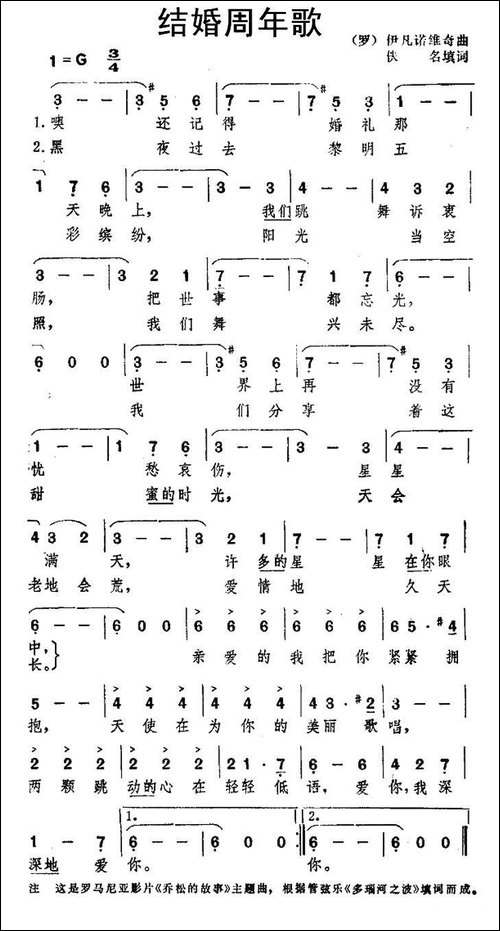 结婚周年歌
1=G 3/4
（罗）伊凡诺维奇曲
佚 名填词
3 - - | 3 #5 6 | 7 - - | 7 #5 3 | 1 - -
1.噢 还记得 婚礼那
2.黑 夜过去 黎明五
1 7 6 | 3 - - | 3 - 3 | 4 - - | 4 3 2
天晚上, 我们跳 舞诉衷
彩缤纷, 阳光 当空
3 - - | 3 2 1 | 7 - - | 7 1 7 | 6 - -
肠, 把世事 都忘光,
照, 我们舞 兴未尽。
6 0 0 | 3 - - | 3 #5 6 | 7 - - | 7 #5 3
世 界上再 没有
我 们分享 着这
1 - - | 1 7 6 | 3 - - | 3 - 3 | 4 - -
忧 愁哀伤, 星星
甜 蜜的时光, 天会
4 3 2 | 3 - - | 3 2 1 | 7 - - | 7 1 7
满 天, 许多的星 星在你眼
老地会荒, 爱情地 久天
6 - - | 6 0 0 | 6 6 6 | 6 6 6 | 6 5 · #4
中,
长。}
亲爱的我把你紧紧拥
5 - - | 4 4 4 | 4 4 4 | 4 3 · #2 | 3 - -
抱, 天使在为你的美丽歌唱,
2 2 2 | 2 2 2 | 2 1 · 7 | 6 - 6 | 4 - 2
两颗跳动的心在轻轻低语, 爱你,我深
1 - 7 | 1. 6 - - | 6 0 0 :| 2. 6 - - | 6 0 0 ||
深地爱你。 你。
注 这是罗马尼亚影片《乔松的故事》主题曲, 根据管弦乐《多瑙河之波》填词而成。